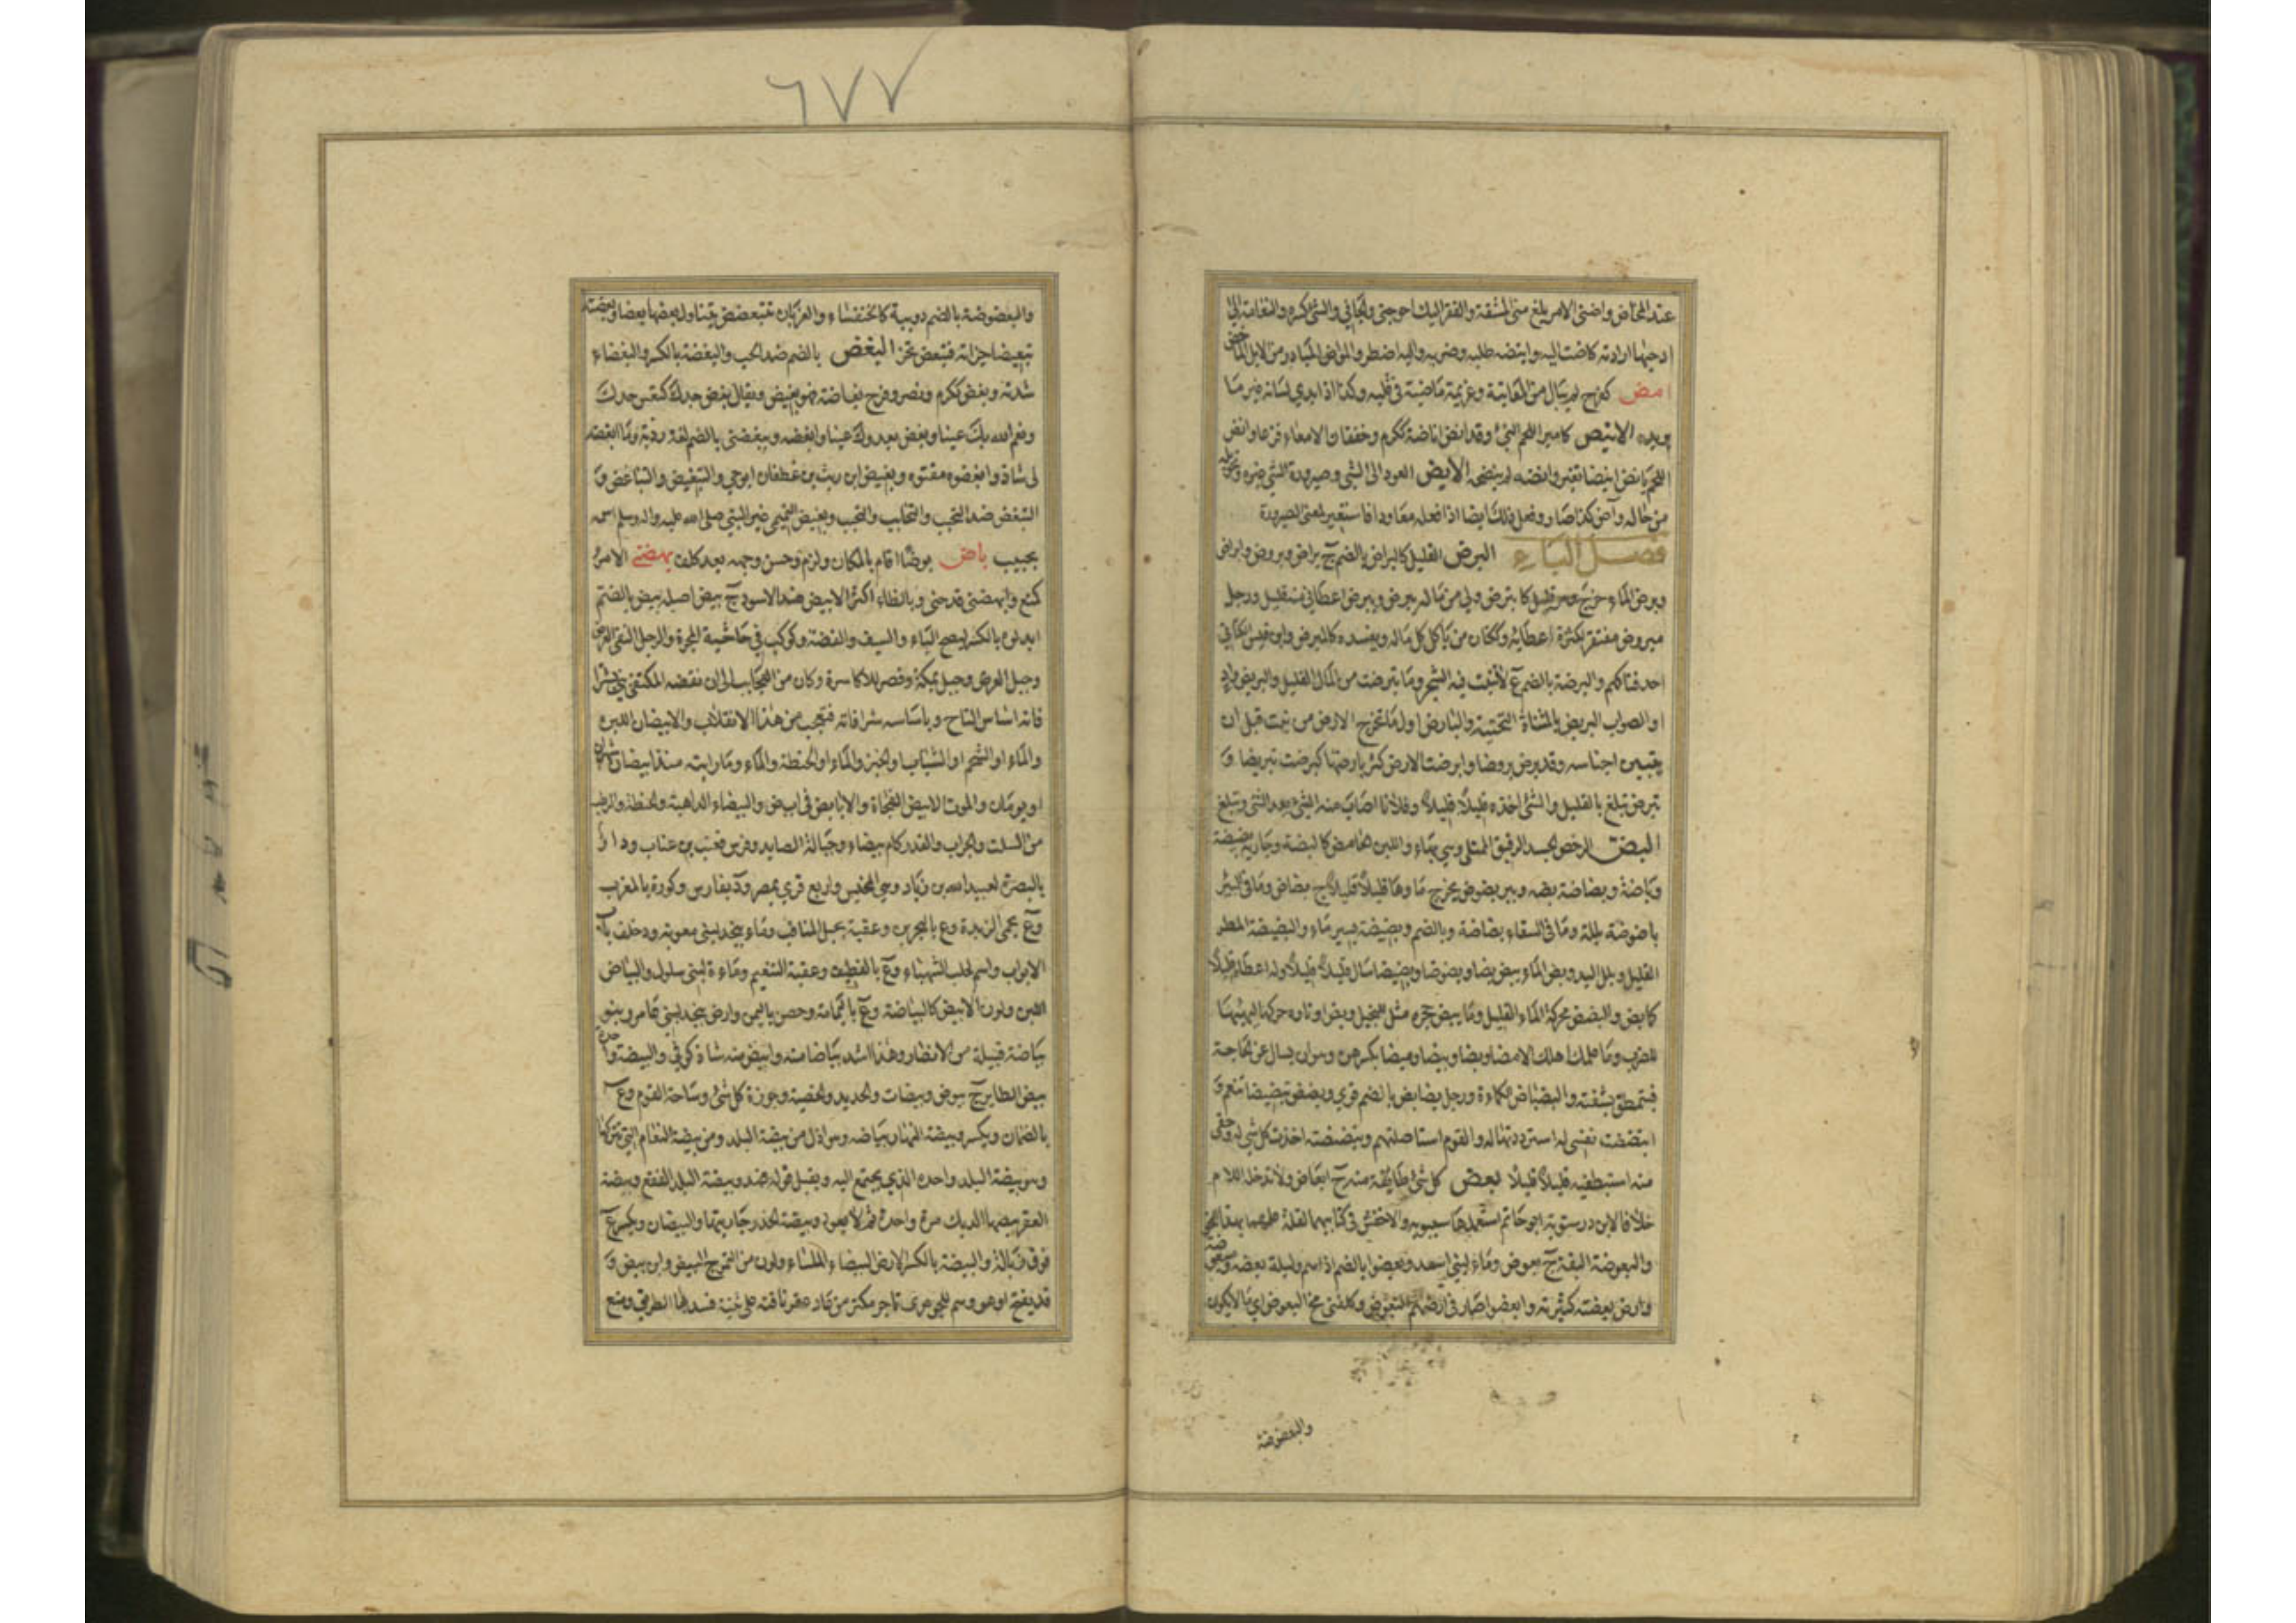 ٦٧٧
عند المخاض واضنى الامر بلغ منى المشقة والفقر اليك احوجنى والجانى والشئ كسره والنعامة الى
ادحيها ارادته كاضت اليه وايتضه طلبه وضربه واليه اضطر والمؤاض المبادر ومن الابل الماخض
امض كفرح لم يبال من المعاتبة وعزيمة ماضية فى قلبه وكذا اذا ابدي لسانه غير ما
يريده الانيض كامير اللحم النئ وقد انض اناضة ككرم وخفقان الامعاء فزعا وانض
اللحم يانض انيضا تغير وانضه لم ينضجه الايض العود الى الشئ وصيرورة الشئ غيره وتحويله
من حاله وآض كذا صار وفعل ذلك ايضا اذا فعله معاودا فاستعير لمعنى الصيرورة
فصل الباء البرض القليل كالبراض بالضم ج براض وبروض وابراض
وبرض الماء خرج وهو قليل كابترض ولى من ماله يبرض ويبرض اعطانى منه قليل ورجل
مبروض مفتقر لكثرة اعطائه وككتان من ياكل كل ماله ويفسده كالمبرض وابن قيس الكنانى
احد فتاكهم والبرضة بالضم ع لا تنبت فيه الشجر وما تبرضت من المال القليل والبريض واد
او الصواب اليريض بالمثناة التحتية والبارض اول ما تخرج الارض من نبت قبل ان
يتبين اجناسه وقد برض بروضا وابرضت الارض كثر بارضها كبرضت تبريضا و
تبرض تبلغ بالقليل والشئ اخذه قليلا قليلا وفلانا اصاب منه الشئ بعد الشئ وتبلغ
البض الرخص الجسد الرقيق الممتلئ وهى بهاء واللبن الحامض كالبضة وجارية بضيضة
وباضة وبضاضة بضة وبير بضوض يخرج ماؤها قليلا قليلا ج بضاض وما فى البئر
باضوضة بللة وما فى السقاء بضاضة وبالضم وبضيضة يسير ماء والبضيضة المطر
القليل وبلل اليد وبض الماء يبض بضا وبضوضا وبضيضا سال قليلا قليلا وله اعطاه قليلا
كابض والبضض محركة الماء القليل وما يبض حجره مثل للبخيل وبض اوتاره حركها ليهيئها
للضرب وما علمك اهلك الا مضا وبضا وبيضا وميضا بكسرهن وهو ان يسال عن الحاجة
فيتمطق بشفته والبضباض الكماة ورجل بضابض بالضم قوي وبضض تبضيضا تنعم و
ابتضضت نفسى له استزدتها له والقوم استاصلتهم وتبضضته اخذت كل شئ له وحقى
منه استنظفته قليلا قليلا بعض كل شئ طايفة منه ج ابعاض ولا تدخله اللام
خلافا لابن درستويه ابو حاتم استعملها سيبويه والاخفش فى كتابيهما لقلة علمهما بهذا النحو
والبعوضة البقة ج بعوض وماء لبنى اسد وبعضوا بالضم اذاهم وليلة بعضة
وارض بعضة كثيرته وابعضوا صار فى ارضهم البعوض وكلفنى مخ البعوض اي ما لا يكون
والبعضوضة
والبعضوضة بالضم دويبة كالخنفساء والغربان تتبعضض يتناول بعضها بعضا وبعضته
تبعيضا جزاته فتبعض تجزا البغض بالضم ضد الحب والبغضة بالكسر والبغضاء
شدته وبغض ككرم ونصر وفرح بغاضة فهو بغيض ويقال بغض جدك كتعس جدك
ونعم الله بك عينا وبغض بعدوك عينا وابغضه ويبغضنى بالضم لغة ردية وما ابغضه
لى شاذ وابغضوه مقتوه وبغيض بن ريث بن غطفان ابو حى والتبغيض والتباغض و
التبغض ضد التحبيب والتحابب والتحبب وبغيض التميمى غير النبى صلى الله عليه واله وسلم اسمه
بحبيب باض بوضا اقام بالمكان ولزم وحسن وجهه بعد كلف بهضنى الامر
كمنع وابهضنى فدحنى وبالظاء اكثر الابيض ضد الاسود ج بيض اصله بيض بالضم
ابدلوه بالكسر ليصح الياء والسيف والفضة وكوكب فى حاشية المجرة والرجل النقى العرض
وجبل العرج وجبل بمكة وقصر للاكاسرة وكان من العجايب الى ان نقضه المكتفى
فانه اساس التاج وباساسه شرافاته فتعجب من هذا الانقلاب والابيضان اللبن
والماء او الشحم او الشباب والخبز والماء او الحنطة والماء وما رايته منذ ابيضان شهران
او يومان والموت الابيض الفجاة والابايض فى ابيض والبيضاء الداهية والحنطة والرطب
من السلت والخراب والقدر كام بيضاء وحبالة الصايد وفرس قعنب بن عتاب ودار
بالبصرة لعبيد الله بن زياد وهى المخيس واربع قري بمصر ود بفارس وكورة بالمغرب
وع بحمى الربذة وع بالبحرين وعقبة بجبل المناقب وماء بنجد لبنى معوية ود خلف باب
الابواب واسم لحلب الشهباء وع بالقطيف وعقبة التنعيم وماءة لبنى سلول والبياض
اللبن ولون الابيض كالبياضة وع باليمامة وحصن باليمن وارض بنجد لبنى عامر وبنو
بياضة قبيلة من الانصار وهذا اشد بياضا منه وابيض منه شاذ كوفى والبيضة واحدة
بيض الطاير ج بيوض وبيضات والحديد والخصية وحوزة كل شئ وساحة القوم وع
بالصمان ويكسر وبيضة النهار بياضه وهو اذل من بيضة البلد ومن بيضة النعام التى تتركها
وهو بيضة البلد واحده الذي يجتمع اليه ويقبل قوله ضد وبيضة البلد الفقع وبيضة
العقر يبيضها الديك مرة واحدة ثم لا يعود وبيضة الخدر جاريتها والبيضان ويكسر ع
فوق زبالة والبيضة بالكسر الارض البيضاء الملساء ولون من التمر ج البيض وابن بيض و
قد يفتح او هو وهم للجوهرى تاجر مكثر من عاد عقر ناقته على ثنية فسد بها الطريق ومنع